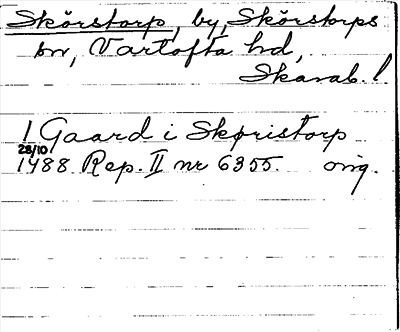 Skörstorp, by, Skörstorps
sn, Vartofta hd,
Skarab. l.
1 Gaard i Skøristorp
28/10
1488 Rep. II nr 6355. orig.